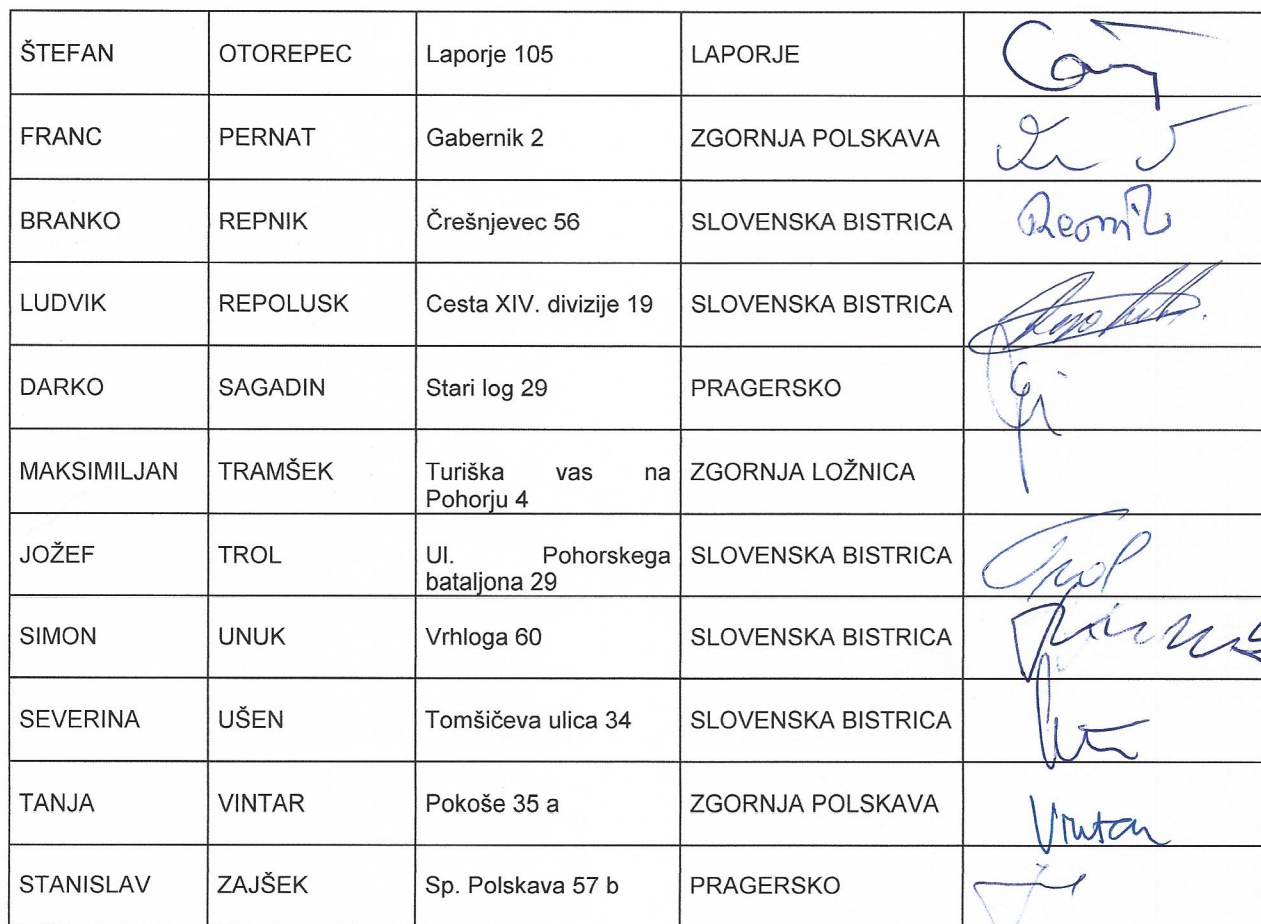 ŠTEFAN OTOREPEC Laporje 105 LAPORJE
FRANC PERNAT Gabernik 2 ZGORNJA POLSKAVA
BRANKO REPNIK Črešnjevec 56 SLOVENSKA BISTRICA
LUDVIK REPOLUSK Cesta XIV. divizije 19 SLOVENSKA BISTRICA
DARKO SAGADIN Stari log 29 PRAGERSKO
MAKSIMILJAN TRAMŠEK Turiška vas na ZGORNJA LOŽNICA
Pohorju 4
JOŽEF TROL Ul. Pohorskega SLOVENSKA BISTRICA Trol
bataljona 29
SIMON UNUK Vrhloga 60 SLOVENSKA BISTRICA
SEVERINA UŠEN Tomšičeva ulica 34 SLOVENSKA BISTRICA
TANJA VINTAR Pokoše 35 a ZGORNJA POLSKAVA Vintar
STANISLAV ZAJŠEK Sp. Polskava 57 b PRAGERSKO